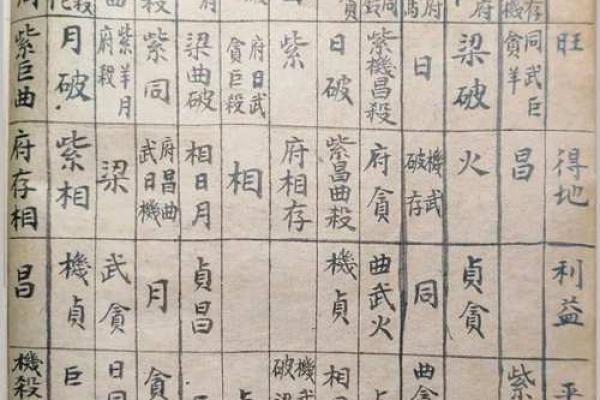 存
機
府
府
貞
殺
旺
同武巨
貪羊
梁破
日
紫機昌殺
日破
紫
府日武
貪巨殺
梁曲破
紫同
紫羊月
府殺
月破
紫巨曲
得地
昌
火
機武
破存
府貪
紫昌曲殺
府相存
相
相日月
府昌曲
武日機
梁
紫相
府存相
利益
貞貪
同
曲武火
機貞
貞昌
月
武貪
機貞
昌
平
紫
曲
相
機武
破
貪
日
巨
機殺